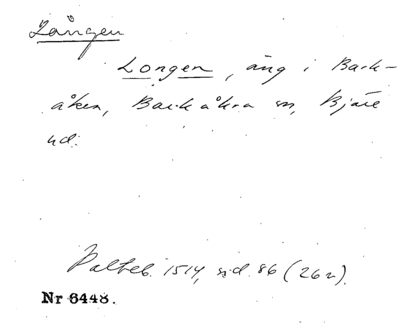 Lången
Longen, äng i Bark-
åkra, Barkåkra sn, Bjäre
hd.
Palteb. 1514, sid. 86 (26v).
Nr 6448.